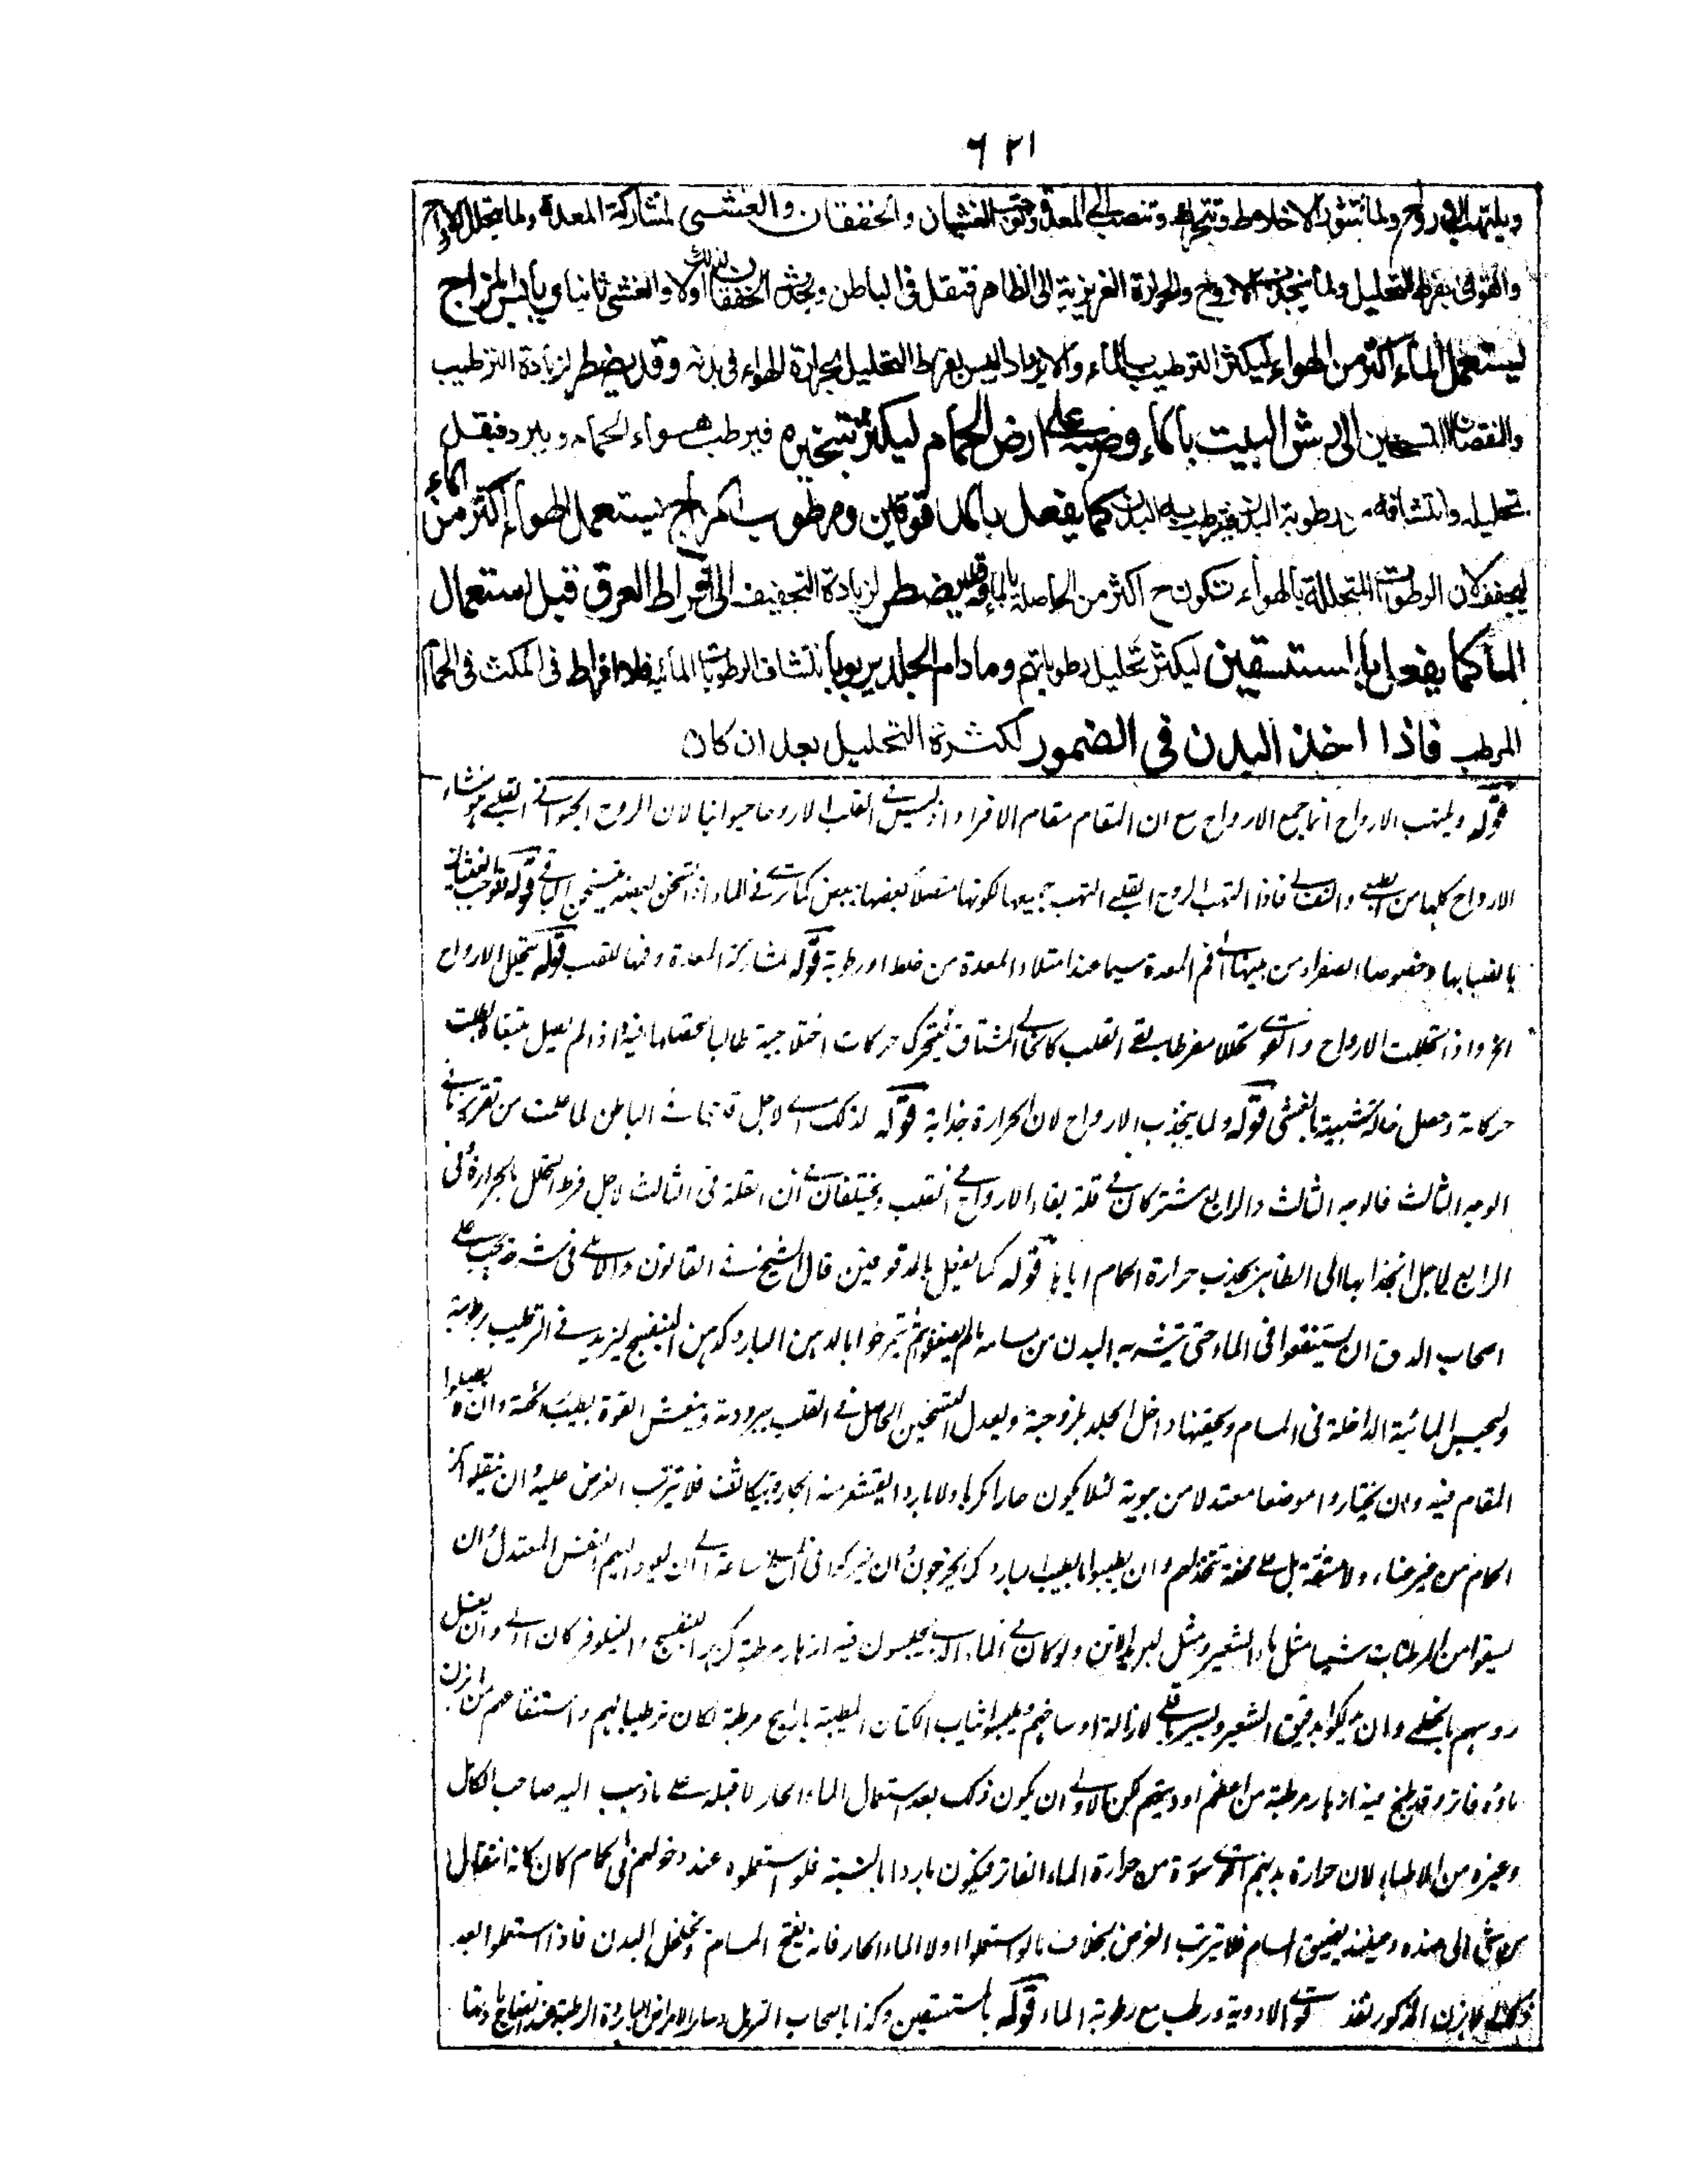 ٦٢١
ويلتهب الارواح ولما تتثور الاخلاط وتتحرك وتنصب الى المعدة وتوجب الغثيان والخفقان والغشى لمشاركة المعدة ولما يتحلل الارواح
والقوى بفرط التحليل ولما ينجذب الارواح والحرارة الغريزية الى الظاهر فتقل فى الباطن ويحدث الخفقان لذلك اولا والغشى ثانيا ويابس المزاج
ليستعمل الماء اكثر من الهواء ليكثر الترطيب بالماء ولا يزداد اليبس بفرط التحليل بحرارة الهواء فى بدنه وقد يضطر لزيادة الترطيب
والنقصان التسخين الى رش البيت بالماء وصبه على ارض الحمام ليكثر تبخيره فيرطب هواء الحمام ويبرد فيقل
تحليله وانتشافه رطوبة البدن فيرطب به البدن كما يفعل بالمدقوقين ومرطوب المزاج يستعمل الهواء اكثر من الماء
ليجفف لان الرطوبات المتحللة بالهواء تكون ح اكثر من الحاصلة بالماء وقد يضطر لزيادة التجفيف الى افراط العرق قبل استعمال
الماء كما يفعل بالمستسقين ليكثر تحليل رطوباتهم وما دام الجلد يربو بانتشاف الرطوبات المائية فلا افراط فى المكث فى الحمام
المرطب فاذا اخذ البدن فى الضمور لكثرة التحليل بعد ان كان
قوله ويلتهب الارواح انما جمع الارواح مع ان المقام مقام الافراد اذ ليس فى القلب الا روحا حيوانيا لان الروح الحيوانى القلبى هو منشاء
الارواح كلها من الطبعى والنفسانى فاذا التهب الروح القلبى التهب جميعها لكونها متصلا بعضها ببعض كما ترى فى الماء اذا سخن بعضه يتسخن الباقى قوله توجب الغثيان
بانصبابها وخصوصا الصفراء من بينها الى فم المعدة سيما عند امتلاء المعدة من خلط او رطوبة قوله لمشاركة المعدة وفمها للقلب قوله يتحلل الارواح
الخ واذا تحللت الارواح والقوى تحللا مفرطا بقى القلب كالخالى المشتاق فيتحرك حركات اختلاجية طالبا لتحصلها فيه واذا لم يصل بتبغاه بطلت
حركاته وحصل حالة شبيهة بالغشى قوله ولما ينجذب الارواح لان الحرارة جذابة قوله لذلك اى لاجل قلتها فى الباطن لما علمت من تقريرنا فى
الوجه الثالث فالوجه الثالث والرابع مشتركان فى قلة بقاء الارواح فى القلب ويختلفان فى ان القلة فى الثالث لاجل فرط التحلل بالحرارة وفى
الرابع لاجل انجذابها الى الظاهر بجذب حرارة الحمام اياها قوله كما يفعل بالمدقوقين قال الشيخ فى القانون والآملى فى شرحه يجب على
اصحاب الدق ان يستنقعوا فى الماء حتى يتشربه البدن من مسامه ما لم يضعفوا ثم يتمرخوا بالدهن البارد كدهن البنفسج ليزيد فى الترطيب برطوبته
وليحبس المائية الداخلة فى المسام ويحقنها داخل الجلد بلزوجته ويعدل التسخين الحاصل فى القلب ببرودته وينعش القوة بطيب رائحته وان لا يطيلوا
المقام فيه وان يختاروا موضعا معتدلا من بيوته لئلا يكون حارا كربا ولا باردا يقشعر منه الجلد ويتكاثف فلا يترتب الغرض عليه وان ينقلوا الى
الحمام من غير عناء ولا مشقة بل على محفة تتخذ لهم وان يطيبوا بالطيب البارد كما يخرجون وان يتركوا فى المسلخ ساعة الى ان يعود اليهم النفس المعتدل وان
يسقوا من المرطبات شيئا مثل ماء الشعير ومثل لبن الاتن ولو كان فى الماء الذى يجلسون فيه ازهار مرطبة كزهر البنفسج والنيلوفر كان اولى وان يغسل
رؤسهم بالخطمى وان يدلكوا بدقيق الشعير والباقلى لازالة اوساخهم ويلبسوا ثياب الكتان المطيبة باراييح مرطبة لكان ترطيبا لهم واستنقاعهم من ابزن
ماؤه فاتر وقد طبخ فيه ازهار مرطبة من اعظم ادويتهم لكن الاولى ان يكون ذلك بعد استعمال الماء الحار لا قبله على ما ذهب اليه صاحب الكامل
وغيره من الاطباء لان حرارة بدنهم اقوى سورة من حرارة الماء الفاتر فيكون باردا بالنسبة فلو استعملوه عند دخولهم فى الحمام كان كانه انتقال
من شئ الى ضده وحينئذ يضيق المسام فلا يترتب الغرض بخلاف ما لو استعملوا اولا الماء الحار فانه يفتح المسام ويخلخل البدن فاذا استعملوا بعد
ذلك الابزن المذكور نفذ قوى الادوية ورطب مع رطوبة الماء قوله بالمستسقين وكذا باصحاب الترهل وسائر الامراض الباردة الرطبة